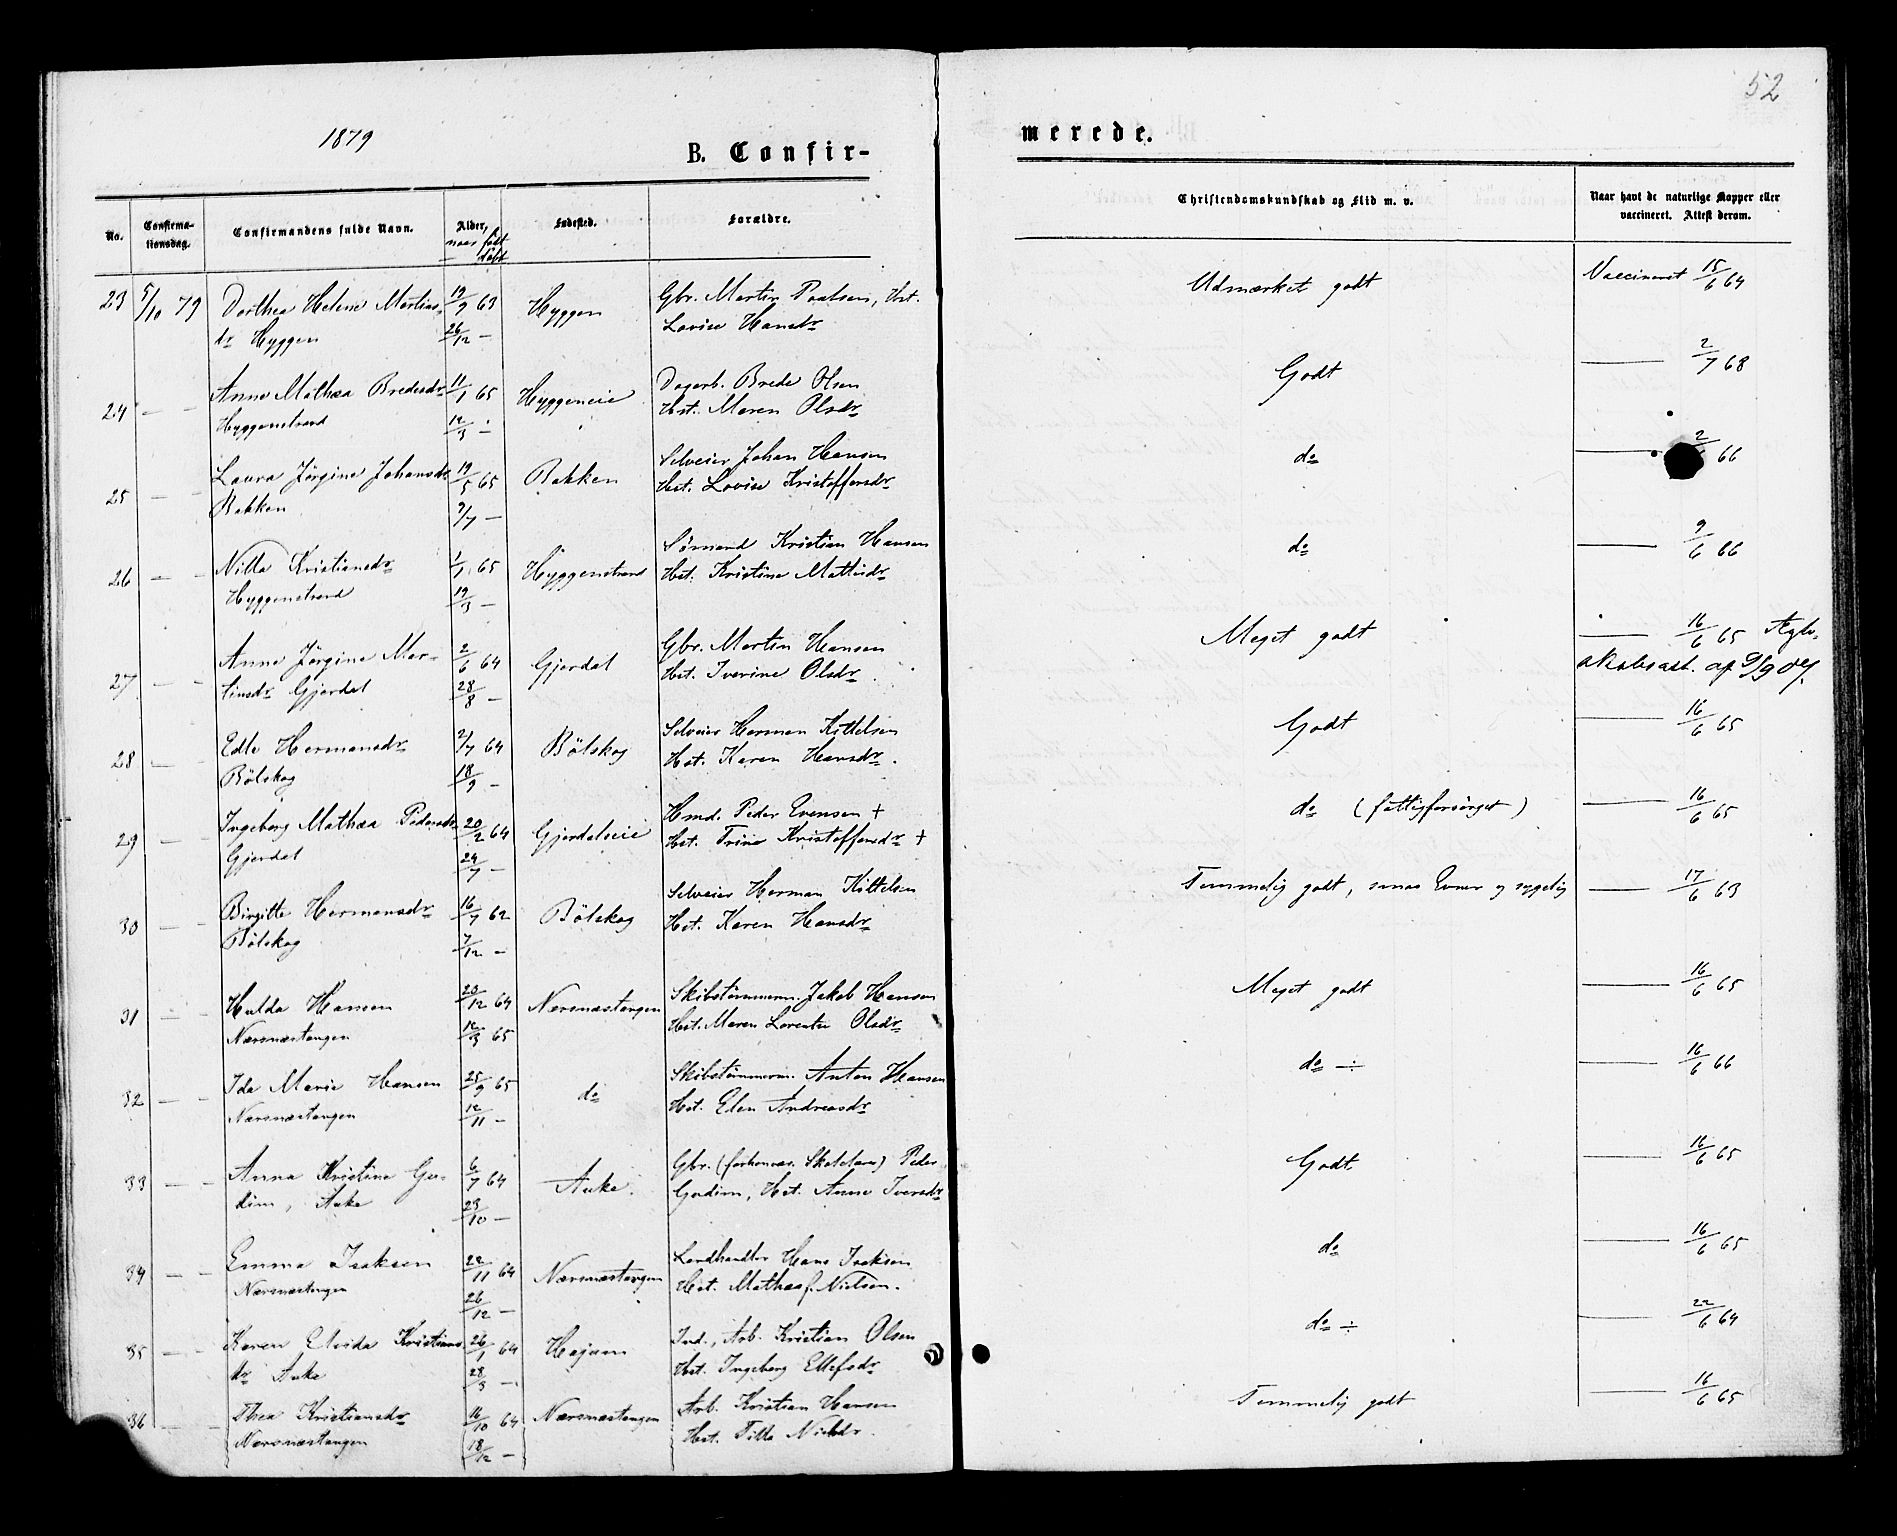 52
1879
B. Confir-
merede.
No.
Confirma-
tionsdag.
Confirmandens fulde Navn.
Alder,
naar født
døbt
Fødested.
Forældre.
Christendomskundskab og Flid m. v.
Naar havt de naturlige Kopper eller
vaccineret. Attest derom.
23 5/10 79 Dorthea Helene Martins- 19/9 63 Hyggen Gbr. Martin Paalsen, Hst. Udmærket godt Vaccineret 15/6 64
dr Hyggen 26/12 — Lovise Hansdr
24 — — Anne Mathea Bredesdr 11/1 65 Hyggeneie Dagarb. Brede Olsen Godt — 2/7 68
Hyggenstrand 12/3 — Hst. Maren Olsdr
25 — — Laura Jørgine Johansdr 19/5 65 Bakken Selveier Johan Hansen do — 2/ 66
Bakken 9/7 — Hst. Lovise Kristoffersdr
26 — — Nilla Kristiansdr 1/1 65 Hyggenstrand Sømand Kristian Hansen do — 9/6 66
Hyggenstrand 19/3 — Hst. Kristine Mathisdr
27 — — Anne Jørgine Mar- 2/6 64 Gjerdal Gbr. Martin Hansen Meget godt — 16/6 65 Ægte-
tinsdr Gjerdal 28/8 — Hst. Iverine Olsdr skabsast. af 9/9 07.
28 — — Edle Hermansdr 2/7 64 Bölskog Selveier Herman Kittelsen Godt — 16/6 65
Bölskog 18/9 — Hst. Karen Hansdr.
29 — — Ingeborg Mathea Pedersdr 20/2 64 Gjerdaleie Hmd. Peder Evensen + do (fattigforsørget) — 16/6 65
Gjerdal 24/7 — Hst. Trine Kristoffersdr +
30 — — Birgitte Hermansdr 16/7 62 Bölskog Selveier Herman Kittelsen Temmelig godt, smaa Evner og sygelig — 17/6 63
Bölskog 7/12 — Hst. Karen Hansdr
31 — — Hulda Hansen 20/12 64 Nærsnæstangen Skibstömmerm. Jakob Hansen Meget godt — 16/6 65
Nærsnæstangen 12/3 65 Hst. Maren Lorentse Olsdr
32 — — Ida Marie Hansen 25/9 65 do Skibstömmerm. Anton Hansen do ÷ — 16/6 66
Nærsnæstangen 12/11 — Hst. Elen Andreasdr
33 — — Anna Kristine Gu- 6/7 64 Auke. Gbr. (forhenvær. Skolelær.) Peder Godt — 16/6 65
dim, Auke 23/10 — Gudim, Hst. Anne Iversdr
34 — — Emma Isaksen 22/11 64 Nærsnæstangen Landhandler Hans Isaksen do — 16/6 65
Nærsnæstangen 26/12 — Hst. Mathea f. Nielsen.
35 — — Karen Elvida Kristians 26/1 64 Hajum Ind., Arb. Kristian Olsen do ÷ — 22/6 64
dr Auke 28/3 — Hst. Ingeborg Ellefsdr
36 — — Thea Kristiansdr 16/10 64 Nærsnæstangen Arb. Kristian Hansen Temmelig godt — 16/6 65
Nærsnæstangen 18/12 — Hst. Tilla Nielsdr.